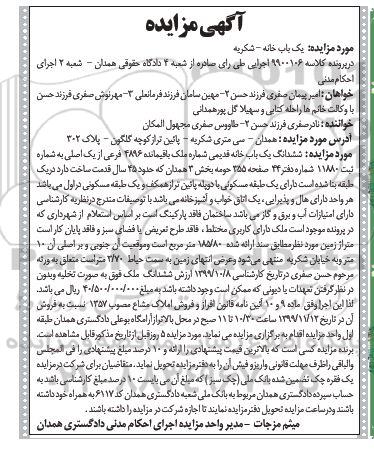 آگهی مزایده
مورد مزایده: یک باب خانه - شکریه
درپرونده کلاسه ۹۹۰۰۱۰۶ اجرایی طی رای صادره از شعبه ۴ دادگاه حقوقی همدان - شعبه ۲ اجرای
احکام مدنی
خواهان: امیر پیمان صفری فرزند حسن ۲- مهین سامان فرزند فرمانعلی ۳- مهرنوش صفری فرزند حسن
با وکالت خانم ها راحله کتابی و سهیلا گل پور همدانی
خوانده: نادر صفری فرزند حسن ۲- طاووس صفری مجهول المکان
آدرس مورد مزایده: همدان - سی متری شکریه - پائین تر از کوچه گلگون - پلاک ۳۰۲
مورد مزایده: ششدانگ یک باب خانه قدیمی شماره ملک باقیمانده ۴۸۹۶ فرعی از یک اصلی به شماره
ثبت ۱۱۸۸۰ شماره دفتر ۴۴ صفحه ۳۵۵ حومه بخش ۳ همدان که حدود ۴۵ سال قدمت ساخت دارد در یک
طبقه بنا شده است دارای یک طبقه مسکونی با دو پله پائین تر از همکف و یک طبقه مسکونی در اول می باشد
هر واحد دارای هال و پذیرایی، یک اتاق خواب و آشپزخانه می باشد با توصیفات مندرج در نظریه کارشناسی
دارای امتیازات آب و برق و گاز می باشد ساختمان فاقد پارکینگ است بر اساس استعلام از شهرداری که
در پرونده موجود است ملک دارای کاربری مختلط، فاقد طرح تعریض یا فضای سبز و فاقد پایان کار است
متراژ زمین مورد نظر مطابق سند ارائه شده ۱۸۵/۸۰ متر مربع است وموقعیت آن جنوبی و بر اصلی آن ۱۰
متر و به خیابان شکریه منتهی می شود و عرض انتهای زمین به سمت حیاط ۲۷۰ متر است متعلق به ورثه
مرحوم حسن صفری در تاریخ کارشناسی ۱۳۹۹/۱۰/۸ ارزش ششدانگ ملک فوق به صورت تخلیه وبدون
در نظر گرفتن تعهدات یا دیونی که ممکن است وجود داشته باشد به مبلغ ۴۰/۵۰۰/۰۰۰/۰۰۰ ریال می باشد.
لذا این اجرا وفق ماده ۹ و ۱۰ آئین نامه قانون افراز و فروش املاک مشاع مصوب ۱۳۵۷ نسبت به فروش
آن در تاریخ ۱۳۹۹/۱۱/۱۲ ساعت ۱۰/۳۰ تا ۱۱ صبح در محل بالاتر از آرامگاه بوعلی دادگستری همدان طبقه
اول واحد مزایده اقدام به برگزاری مزایده می نماید. مورد مزایده ۵ روز قبل از تاریخ مذکور قابل مشاهده است.
برنده مزایده کسی است که بالاترین قیمت پیشنهادی را ارائه و ۱۰ درصد مبلغ پیشنهادی را فی المجلس
والباقی را ظرف مهلت قانونی واریز و فیش آن را به دفتر مزایده تحویل نماید. متقاضیان برای شرکت در مزایده
یک فقره چک تضمین شده بانک ملی (چک سبز) که مبلغ آن می بایست ۱۰ درصد مبلغ کارشناسی باشد به
حساب سپرده دادگستری همدان مربوط به بانک ملی شعبه دادگستری همدان کد ۶۱۱۷ به همراه خود داشته
باشند و در ساعت مزایده تحویل دفتر مزایده نمایند تا اجازه شرکت در مزایده را داشته باشند.
میثم مزجات - مدیر واحد مزایده اجرای احکام مدنی دادگستری همدان